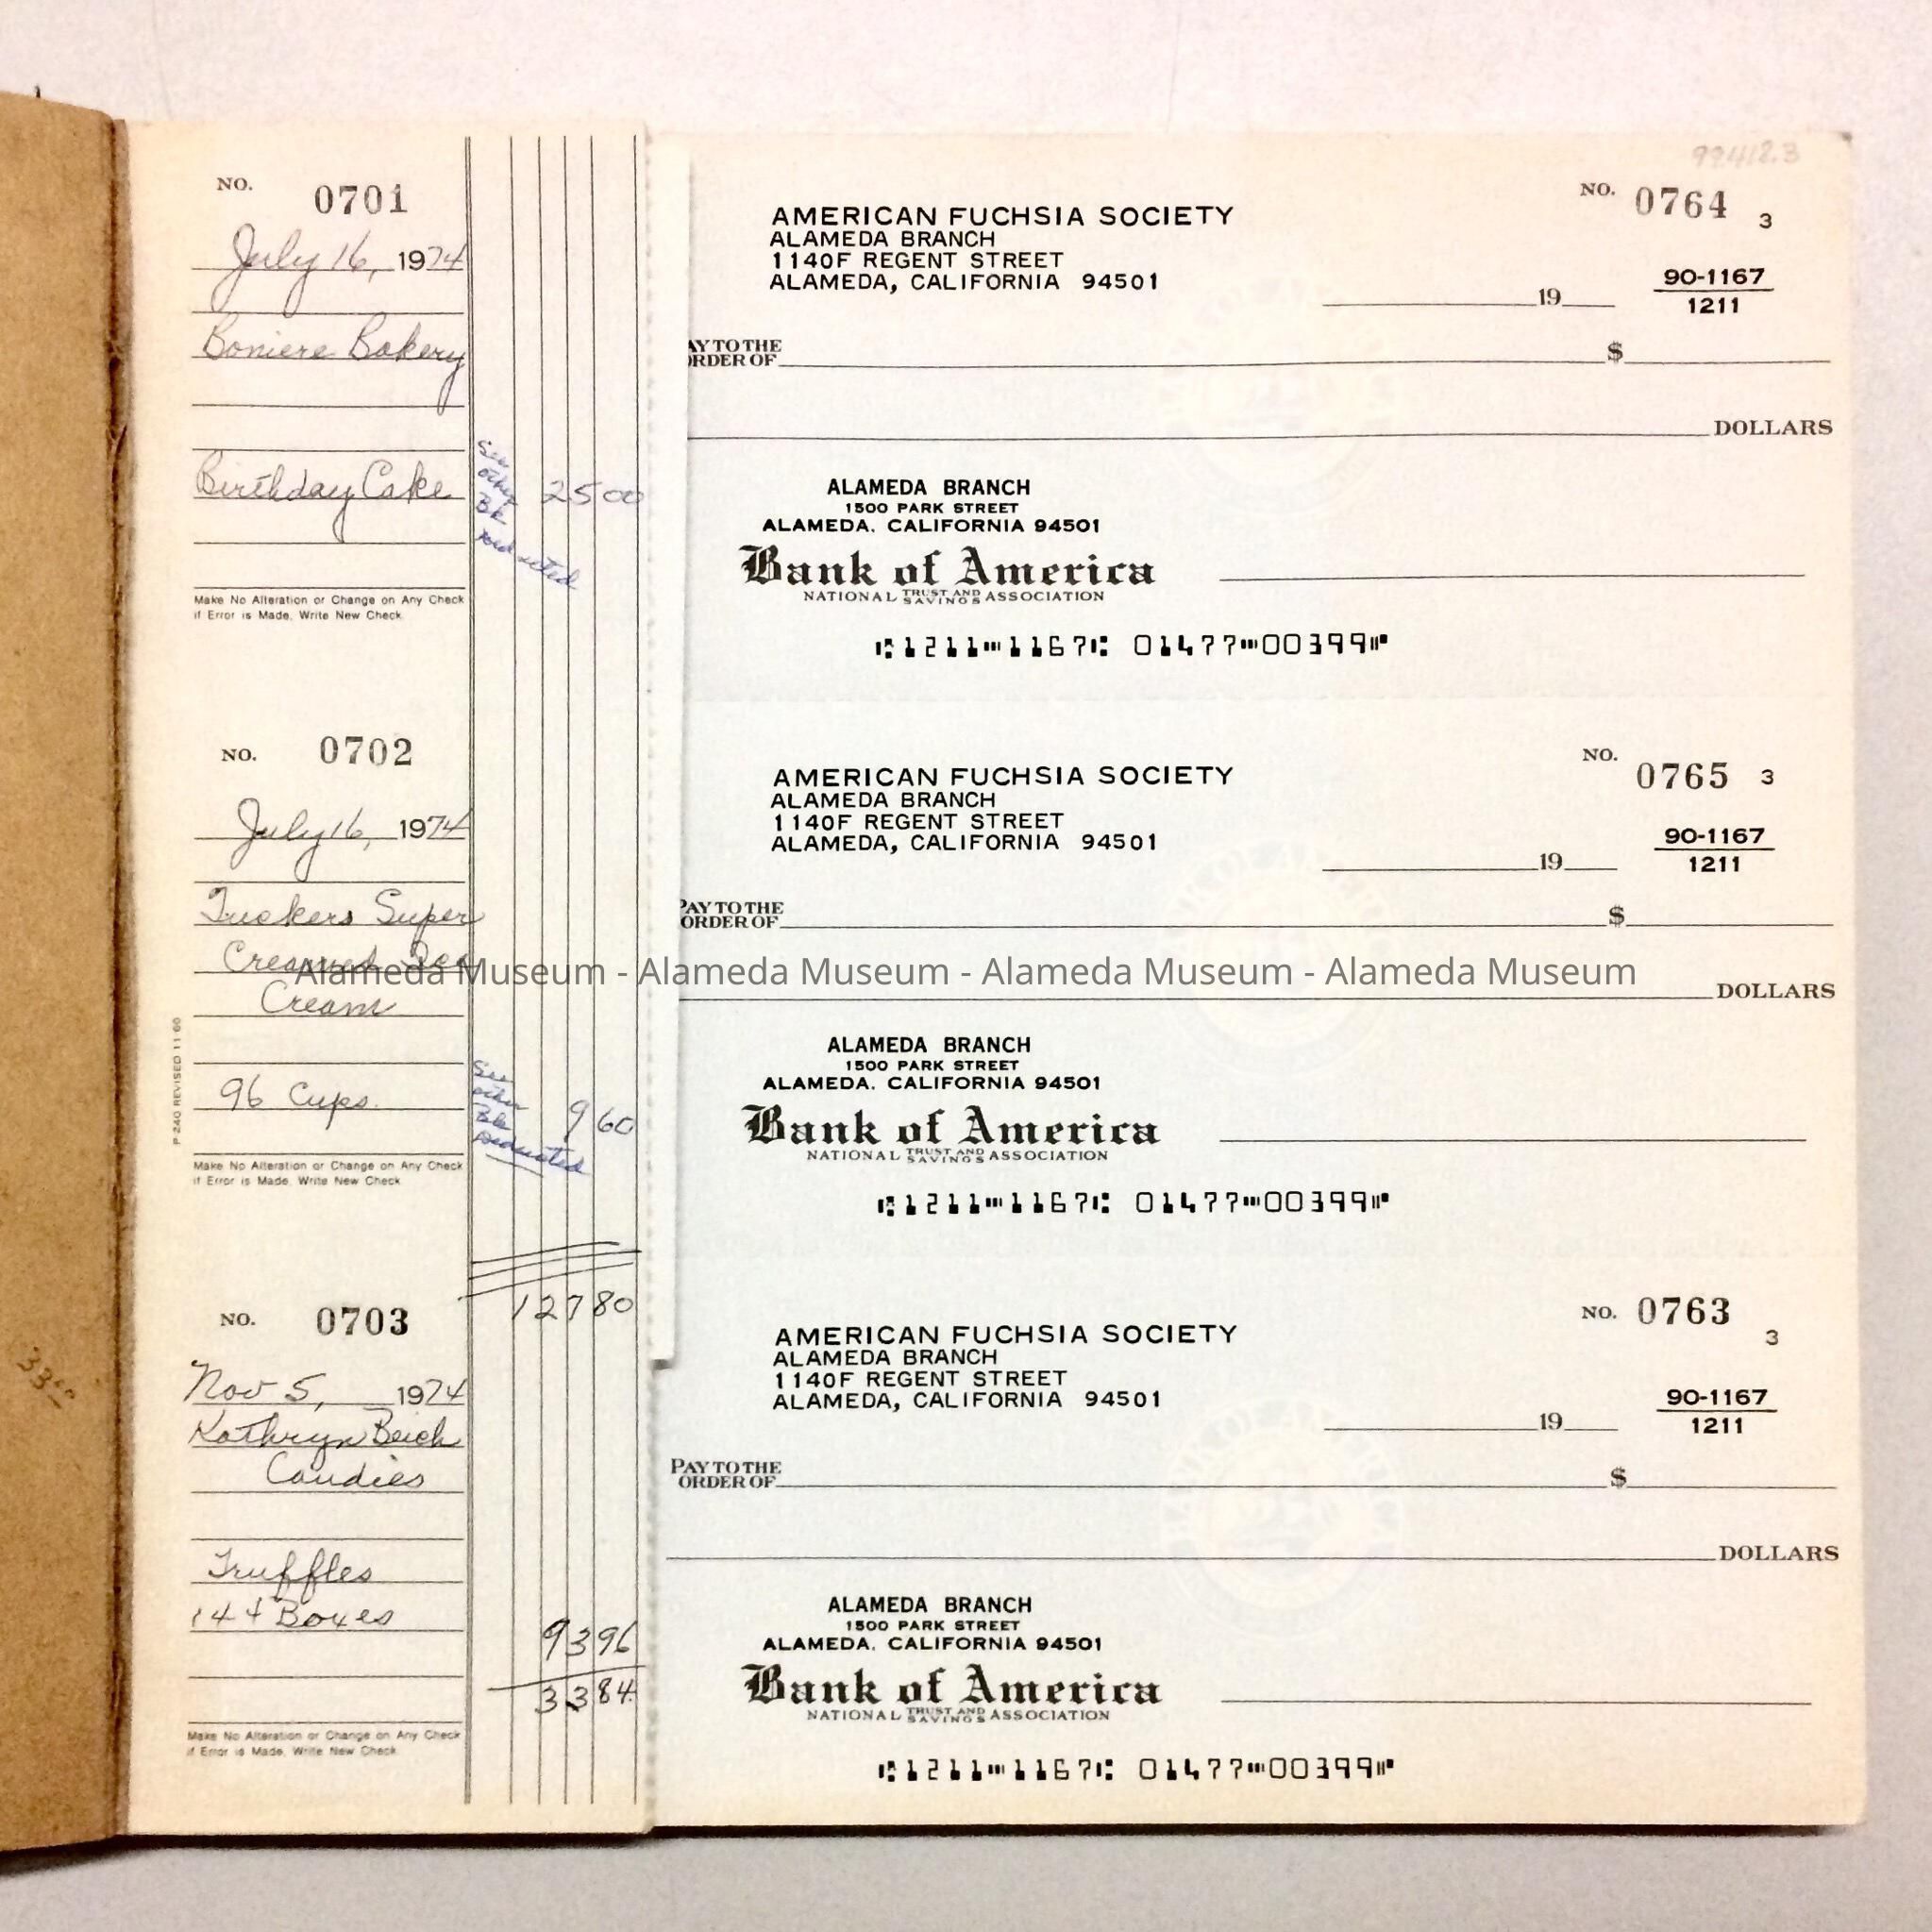 NO. 0701
July 16, 1974
Boniere Bakery
Birthday Cake
See
other
Bk
deducted
25 00
Make No Alteration or Change on Any Check
if Error is Made, Write New Check
NO. 0702
July 16, 1974
Tuckers Super
Creamed Ice
Cream
96 Cups.
See
other
Bk
deducted
9 60
P-240 REVISED 11-60
Make No Alteration or Change on Any Check
if Error is Made, Write New Check
127 80
NO. 0703
Nov 5, 1974
Kathryn Beich
Candies
Truffles
144 Boxes
93 96
33 84
Make No Alteration or Change on Any Check
if Error is Made, Write New Check
99.412.3
NO. 0764 3
AMERICAN FUCHSIA SOCIETY
ALAMEDA BRANCH
1140F REGENT STREET
ALAMEDA, CALIFORNIA 94501
19
90-1167
1211
AY TO THE
ORDER OF $
DOLLARS
ALAMEDA BRANCH
1500 PARK STREET
ALAMEDA, CALIFORNIA 94501
Bank of America
NATIONAL TRUST AND SAVINGS ASSOCIATION
⑆1211⑉1167⑆ 01477⑉00399⑈
NO. 0765 3
AMERICAN FUCHSIA SOCIETY
ALAMEDA BRANCH
1140F REGENT STREET
ALAMEDA, CALIFORNIA 94501
19
90-1167
1211
PAY TO THE
ORDER OF $
Alameda Museum - Alameda Museum - Alameda Museum - Alameda Museum
DOLLARS
ALAMEDA BRANCH
1500 PARK STREET
ALAMEDA, CALIFORNIA 94501
Bank of America
NATIONAL TRUST AND SAVINGS ASSOCIATION
⑆1211⑉1167⑆ 01477⑉00399⑈
NO. 0763
3
AMERICAN FUCHSIA SOCIETY
ALAMEDA BRANCH
1140F REGENT STREET
ALAMEDA, CALIFORNIA 94501
19
90-1167
1211
PAY TO THE
ORDER OF $
DOLLARS
ALAMEDA BRANCH
1500 PARK STREET
ALAMEDA, CALIFORNIA 94501
Bank of America
NATIONAL TRUST AND SAVINGS ASSOCIATION
⑆1211⑉1167⑆ 01477⑉00399⑈